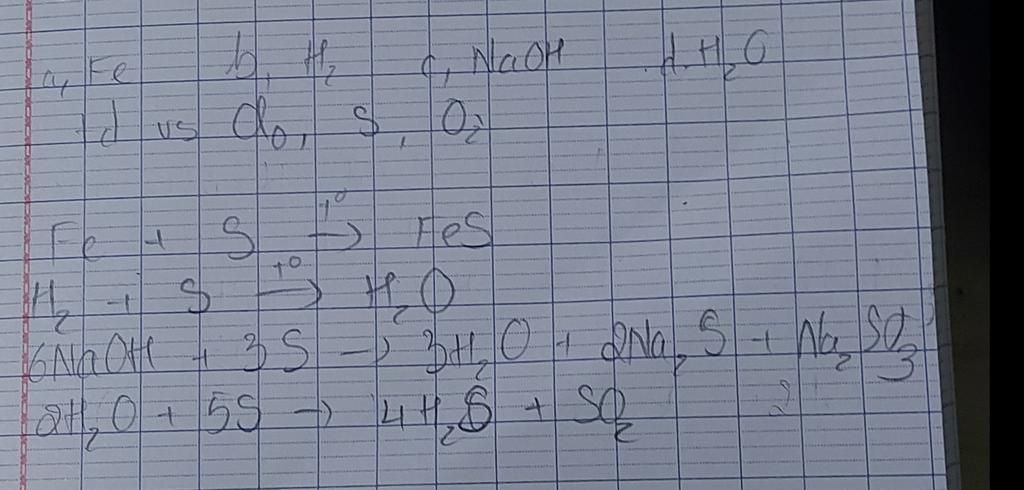 a, Fe b, H₂ c, NaOH d. H₂O
td vs Cl₂, S, O₂
Fe + S →ᵗ° FeS
H₂ + S →ᵗ° H₂O
6NaOH + 3S → 3H₂O + 2Na₂S + Na₂SO₃
2H₂O + 5S → 4H₂S + SO₂